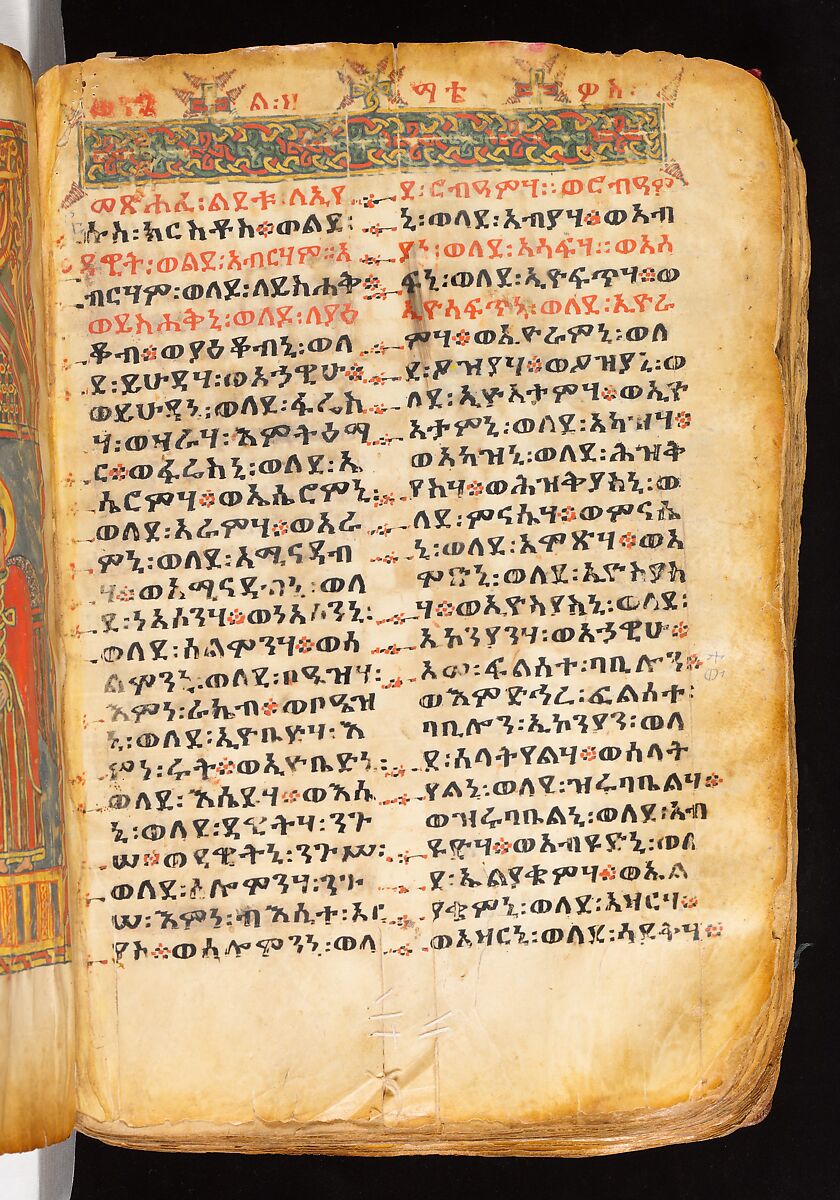 ወንጌል፡ዘ ማቴዎስ፡
መጽሐፈ፡ልደቱ፡ለኢየ
ሱስ፡ክርስቶስ፨ወልደ፡
ዳዊት፡ወልደ፡አብርሃም።አ
ብርሃም፡ወለደ፡ለይስሐቅ፨
ወይስሐቅኒ፡ወለደ፡ለያዕ
ቆብ፨ወያዕቆብኒ፡ወለ
ደ፡ይሁዳሃ፡ወአኀዊሁ፨
ወይሁዳኒ፡ወለደ፡ፋሬስ
ሃ፡ወዛራሃ፡እምትዕማ
ር፨ወፋሬስኒ፡ወለደ፡ኤ
ሴሮምሃ፨ወኤሴሮምኒ፡
ወለደ፡አራምሃ፨ወአራ
ምኒ፡ወለደ፡አሚናዳብ
ሃ፨ወአሚናዳብኒ፡ወለ
ደ፡ነአሶንሃ፨ወነአሶንኒ፡
ወለደ፡ሰልሞንሃ፨ወሰ
ልሞንኒ፡ወለደ፡ቦዔዝሃ፡
እምነ፡ራኬብ፨ወቦዔዝ
ኒ፡ወለደ፡ኢዮቤድሃ፡እ
ምነ፡ሩት፨ወኢዮቤድኒ፡
ወለደ፡እሴይሃ፨ወእሴ
ኒ፡ወለደ፡ዳዊትሃ፡ንጉ
ሠ፨ወዳዊትኒ፡ንጉሠ፡
ወለደ፡ሰሎሞንሃ፡ንጉ
ሠ፡እምነ፡ብእሲተ፡ኦር
ዮ፨ወሰሎሞንኒ፡ወለ
ደ፡ሮብዓምሃ።ወሮብዓም
ኒ፡ወለደ፡አብያሃ፨ወአብ
ያኒ፡ወለደ፡አሳፍሃ።ወአሳ
ፍኒ፡ወለደ፡ኢዮሳፍጥሃ፨ወ
ኢዮሳፍጥኒ፡ወለደ፡ኢዮራ
ምሃ፨ወኢዮራምኒ፡ወለ
ደ፡ዖዝያሃ፨ወዖዝያኒ፡ወ
ለደ፡ኢዮአታምሃ፨ወኢዮ
አታምኒ፡ወለደ፡አካዝሃ፨
ወአካዝኒ፡ወለደ፡ሕዝቅ
ያስሃ፨ወሕዝቅያስኒ፡ወ
ለደ፡ምናሴሃ፨ወምናሴ
ኒ፡ወለደ፡አሞጽሃ፨ወአ
ሞጽኒ፡ወለደ፡ኢዮስያስ
ሃ፨ወኢዮስያስኒ፡ወለደ፡
ኢኮንያንሃ፡ወአኀዊሁ፨
አመ፡ፍልሰተ፡ባቢሎን፨
ወእምድኅረ፡ፍልሰተ፡
ባቢሎን፡ኢኮንያን፡ወለ
ደ፡ሰላትያልሃ፨ወሰላት
ያልኒ፡ወለደ፡ዝሩባቤልሃ፨
ወዝሩባቤልኒ፡ወለደ፡አብ
ዩድሃ፨ወአብዩድኒ፡ወለ
ደ፡ኤልያቄምሃ፨ወኤል
ያቄምኒ፡ወለደ፡አዛርሃ፨
ወአዛርኒ፡ወለደ፡ሳዶቅሃ፨